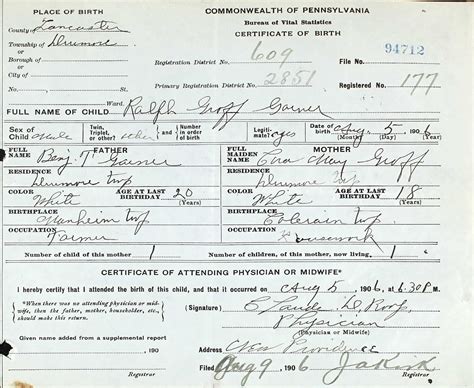 PLACE OF BIRTH
COMMONWEALTH OF PENNSYLVANIA
Bureau of Vital Statistics
CERTIFICATE OF BIRTH
County of Lancaster
Township of Drumore
or
Borough of
or
City of
Registration District No. 609
File No. 94712
Primary Registration District No. 2851
Registered No. 177
(No. St., Ward.
FULL NAME OF CHILD Ralph Groff Garner
Sex of Child Male
Twin, Triplet, or other?
Number in order of birth
Legitimate? yes
Date of birth Aug. 5 1906
FATHER
FULL NAME Benj. T. Garner
MOTHER
FULL MAIDEN NAME Eva May Groff
RESIDENCE Drumore Twp
RESIDENCE Drumore Twp
COLOR White
AGE AT LAST BIRTHDAY 20 (Years)
COLOR White
AGE AT LAST BIRTHDAY 18 (Years)
BIRTHPLACE Manheim Twp
BIRTHPLACE Colerain Twp
OCCUPATION Farmer
OCCUPATION Housework
Number of child of this mother 1
Number of children, of this mother, now living 1
CERTIFICATE OF ATTENDING PHYSICIAN OR MIDWIFE*
I hereby certify that I attended the birth of this child, and that it occurred on Aug 5, 1906, at 6.30 P.M.
*When there was no attending physician or midwife, then the father, mother, householder, etc., should make this return.
(Signature)
Physician
(Physician or Midwife)
Given name added from a supplemental report 190
Address New Providence
Filed Aug 9 1906
Registrar
Registrar